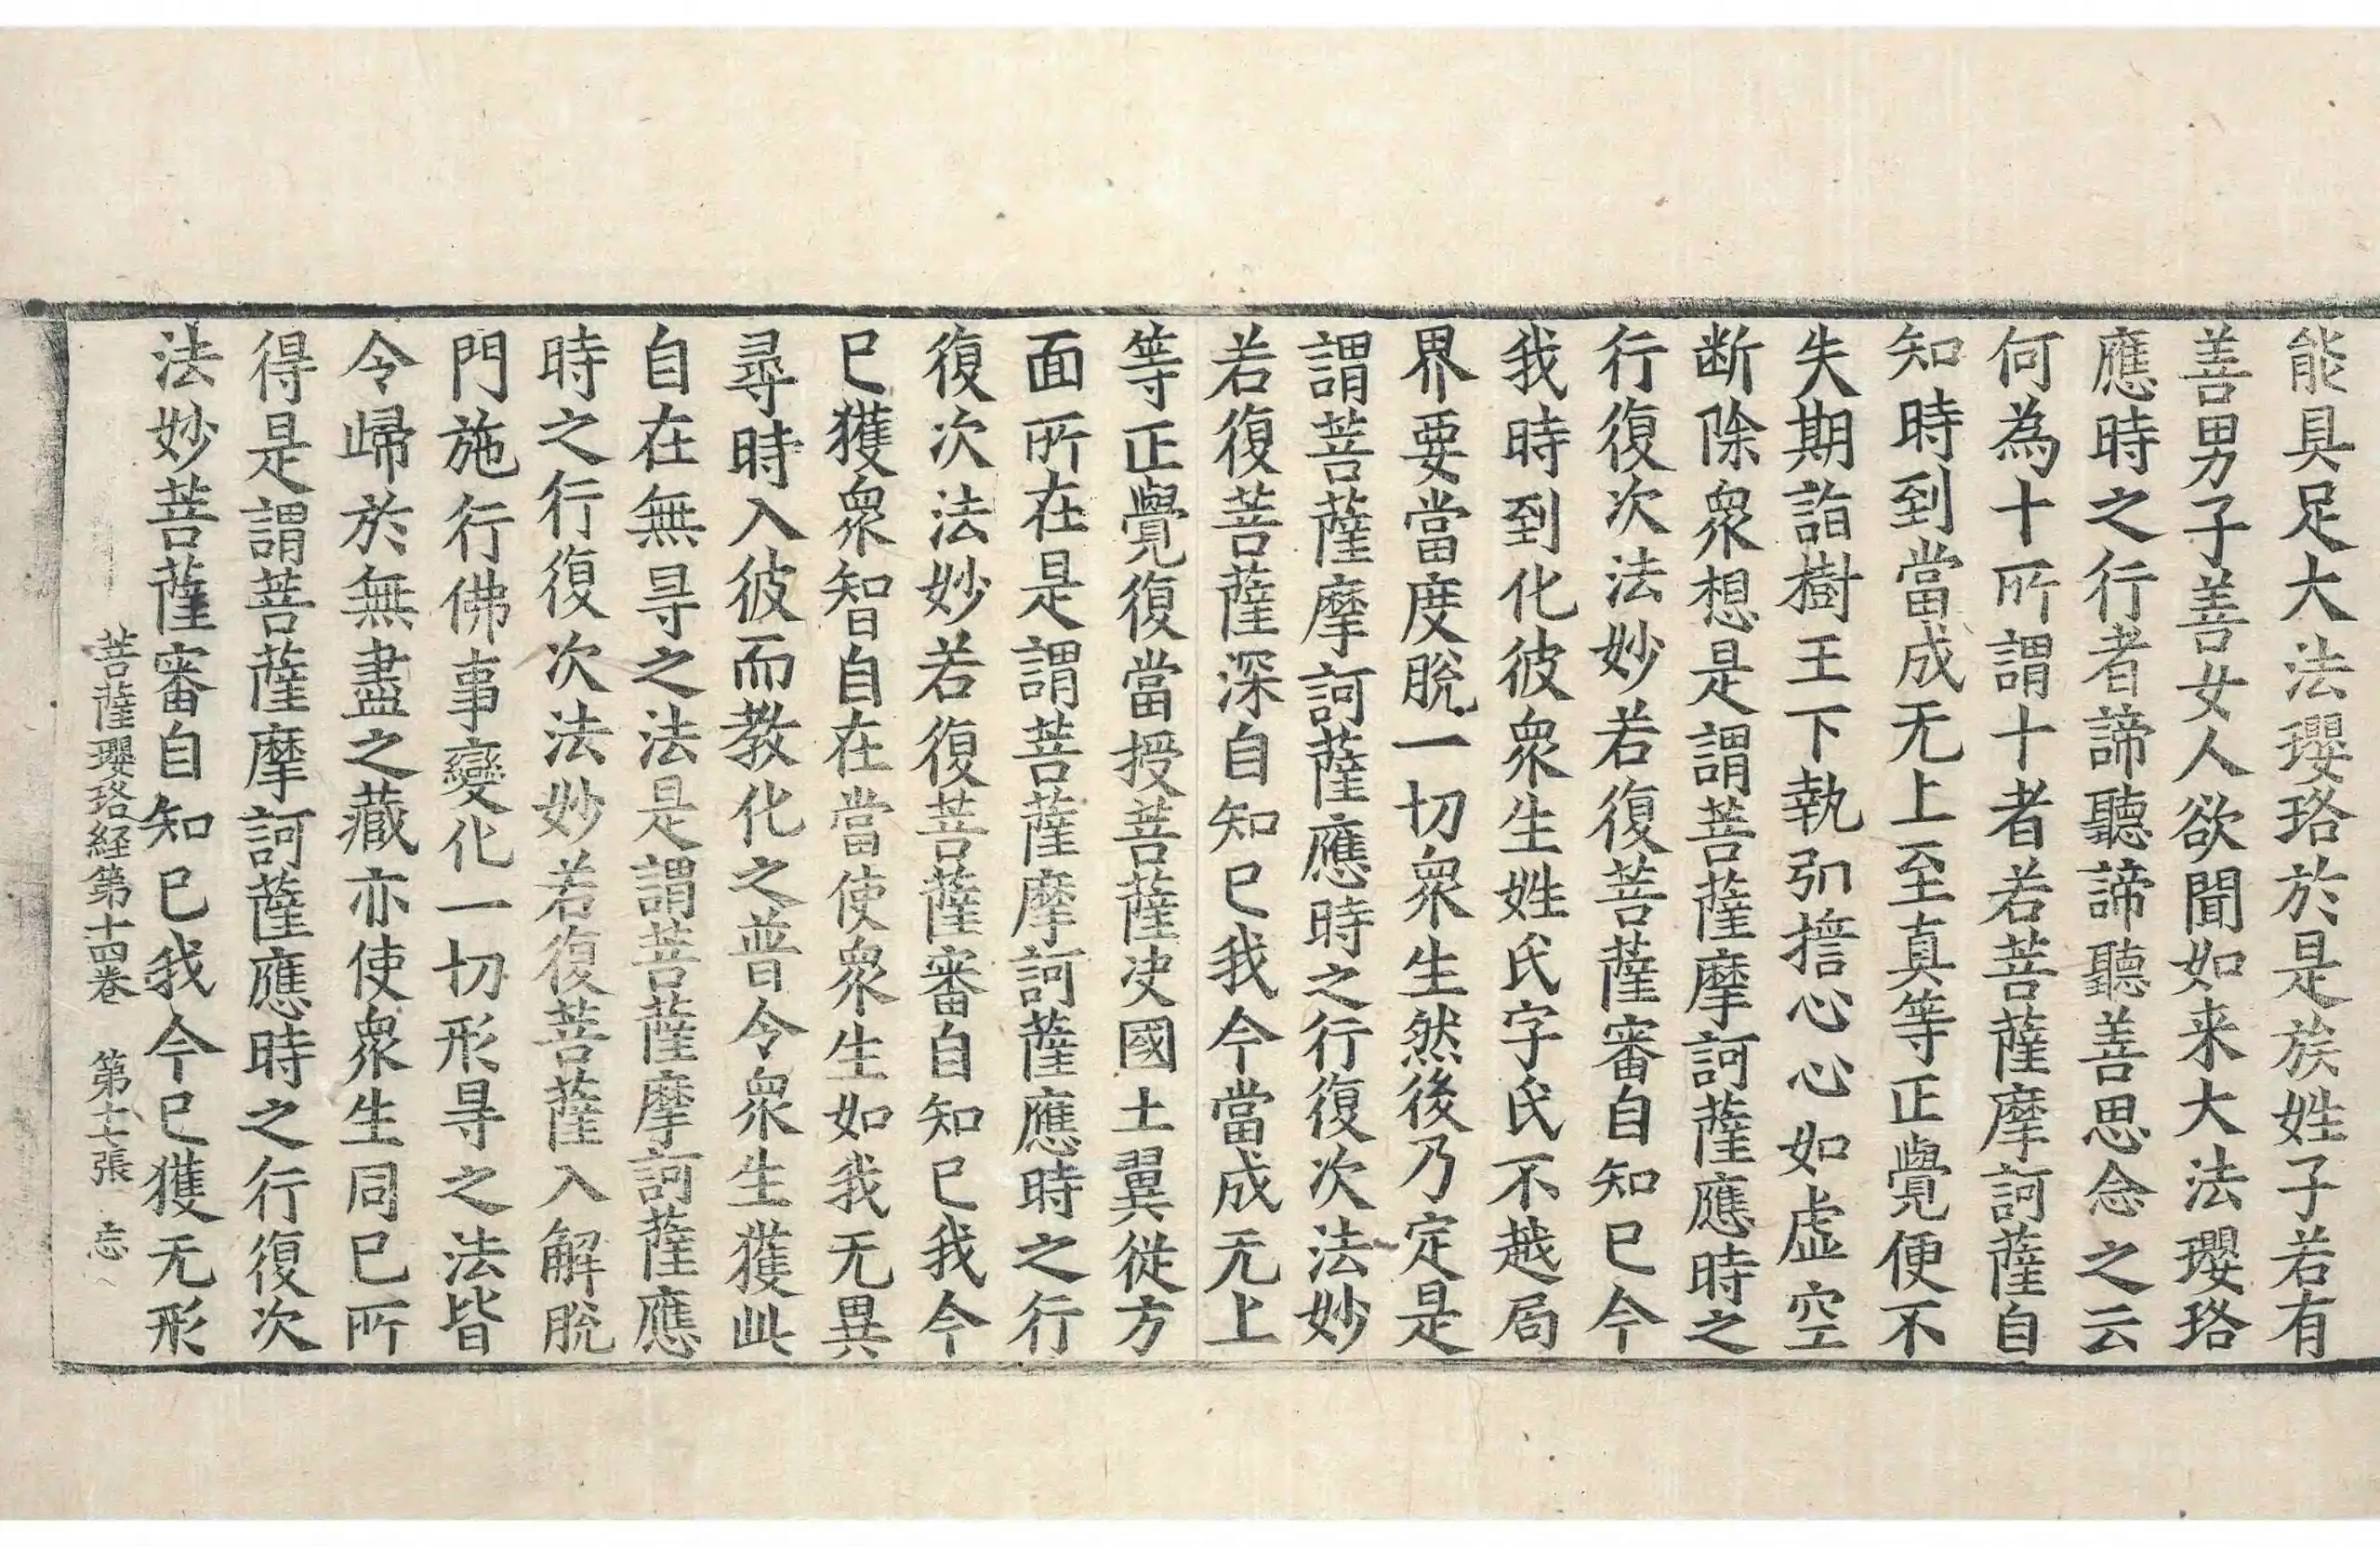 能具足大法瓔珞於是族姓子若有
善男子善女人欲聞如来大法瓔珞
應時之行者諦聽諦聽善思念之云
何為十所謂十者若菩薩摩訶薩自
知時到當成无上至真等正覺便不
失期詣樹王下執弘擔心心如虛空
断除衆想是謂菩薩摩訶薩應時之
行復次法妙若復菩薩審自知已今
我時到化彼衆生姓氏字氏不越局
界要當度脫一切衆生然後乃定是
謂菩薩摩訶薩應時之行復次法妙
若復菩薩深自知已我今當成无上
等正覺復當授菩薩決國土翼從方
面所在是謂菩薩摩訶薩應時之行
復次法妙若復菩薩審自知已我今
已獲衆智自在當使衆生如我无異
尋時入彼而教化之普令衆生獲此
自在無㝵之法是謂菩薩摩訶薩應
時之行復次法妙若復菩薩入解脫
門施行佛事變化一切形㝵之法皆
令歸於無盡之藏亦使衆生同已所
得是謂菩薩摩訶薩應時之行復次
法妙菩薩審自知已我今已獲无形
菩薩瓔珞経第十四卷 第十二張 忘